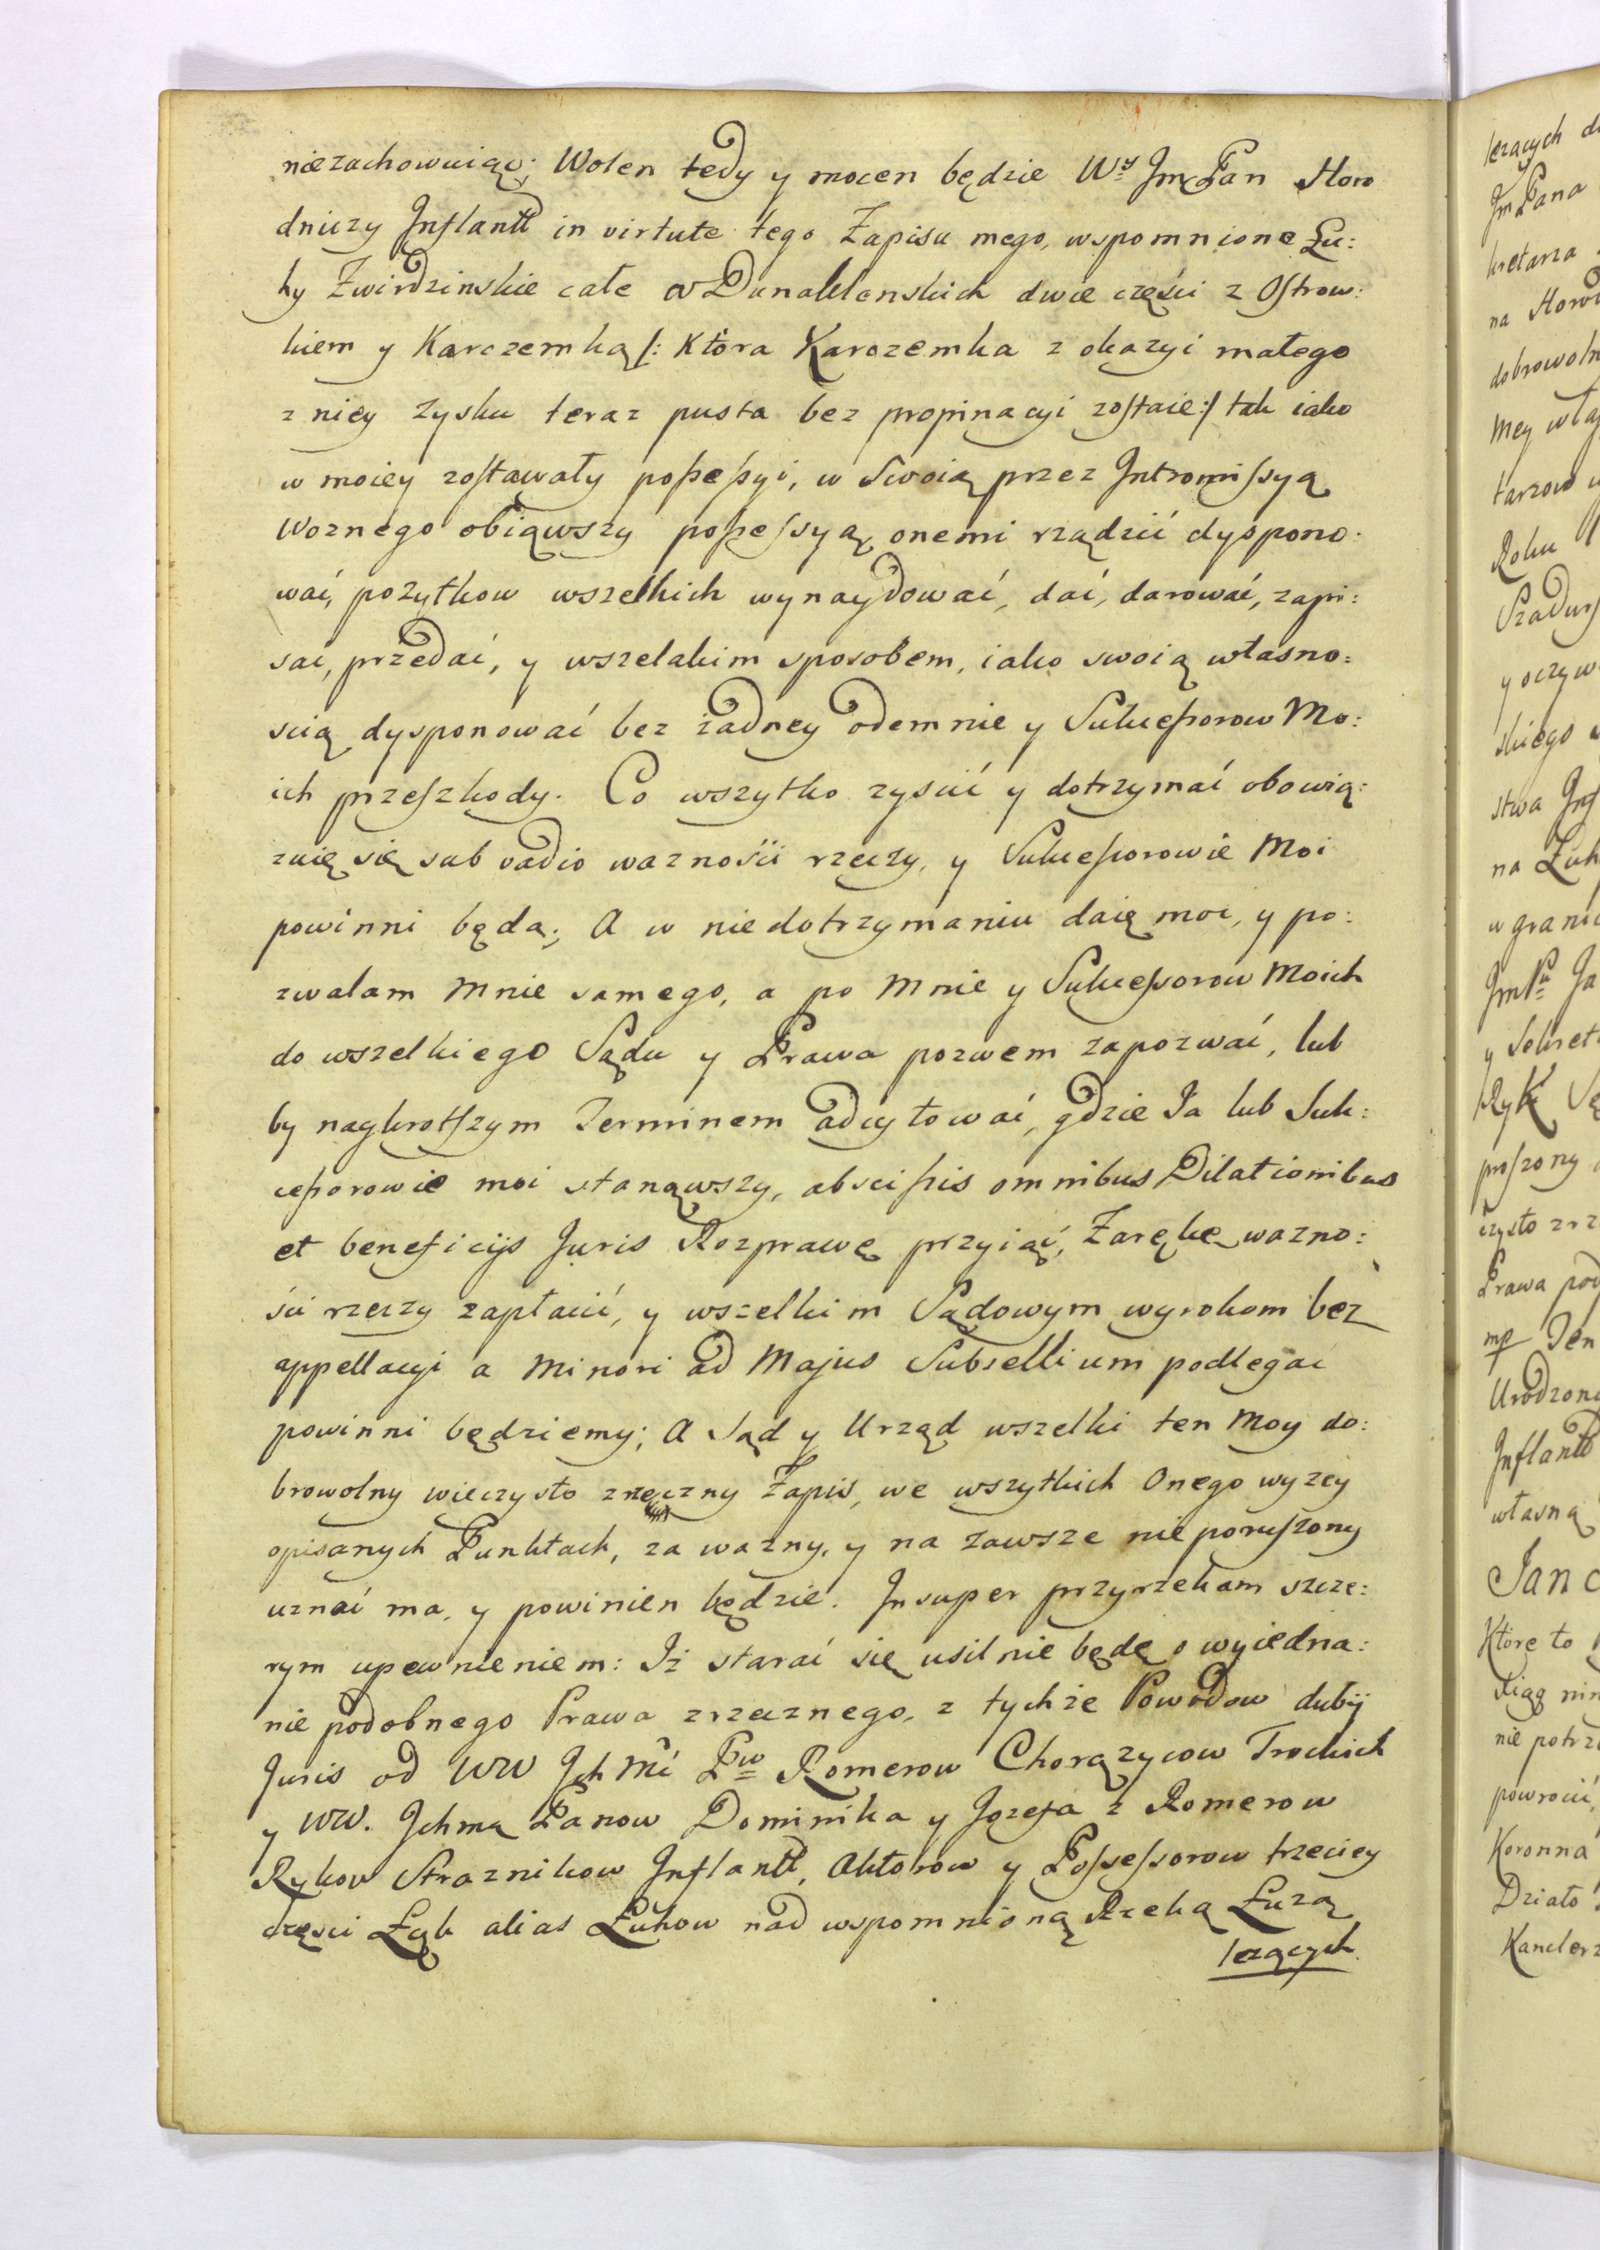 niezachowuiąc; Wolen tedy y mocen będzie Wy JmPan Horo
dniczy Inflantt in virtute tego Zapisu mego, wspomnione Łu:
ky Zwirdzinskie całe a Dunakłenskich dwie części z Ostrow:
kiem y Karczemką /: Ktora Karczemka z okazyi małego
z niey zysku teraz pusta bez propinacyi zostaie :/ tak iako
w moiey zostawały possessyi, w Swoią przez Intromissyą
Woznego obiąwszy possessyą onemi rządzić dyspono:
wać, pożytkow wszelkich wynaydować, dać, darować, zapi:
sać, przedać, y wszelakim sposobem, iako swoią własno:
scią dysponować bez żadney odemnie y Sukcessorow Mo:
ich przeszkody. Co wszytko zyścić y dotrzymać obowią:
zuię się sub vadio ważnośći rzeczy, y Sukcessorowie Moi
powinni będą; A w niedotrzymaniu daię moc, y po:
zwalam Mnie samego, a po Mnie y Sukcessorow Moich
do wszelkiego Sądu y Prawa pozwem zapozwać, lub
by naykrotszym Terminem adcytować, gdzie Ja lub Suk:
cessorowie moi stanąwszy, abscissis omnibus Dilationibus
et beneficijs Juris Rozprawę przyiąć, Zarękę wazno:
ści rzeczy zapłacić, y wszelkim Sądowym wyrokom bez
appellacyi a Minori ad Majus Subsellium podlegać
powinni będziemy; A Sąd y Urząd wszelki ten Moy do:
browolny wieczysto zrzeczny Zapis, we wszytkich Onego wyzey
opisanych Punktach, za wazny, y na zawsze nieporuszony
uznać ma, y powinien będzie. Insuper przyrzekam szcze:
rym upewnieniem: Iż starać się usilnie będę o wyiedna:
nie podobnego Prawa zrzecznego, z tychże Powodow dubij
Juris od WW Jch Mć Pw Romerow Chorązycow Trockich
y WW. Jchmą Panow Dominika y Jozefa z Romerow
Rykow Straznikow Inflantt, Aktorow y Possessorow trzeciey
części Łąk alias Łukow nad wspomnioną Rzeką Łuzą
lezących